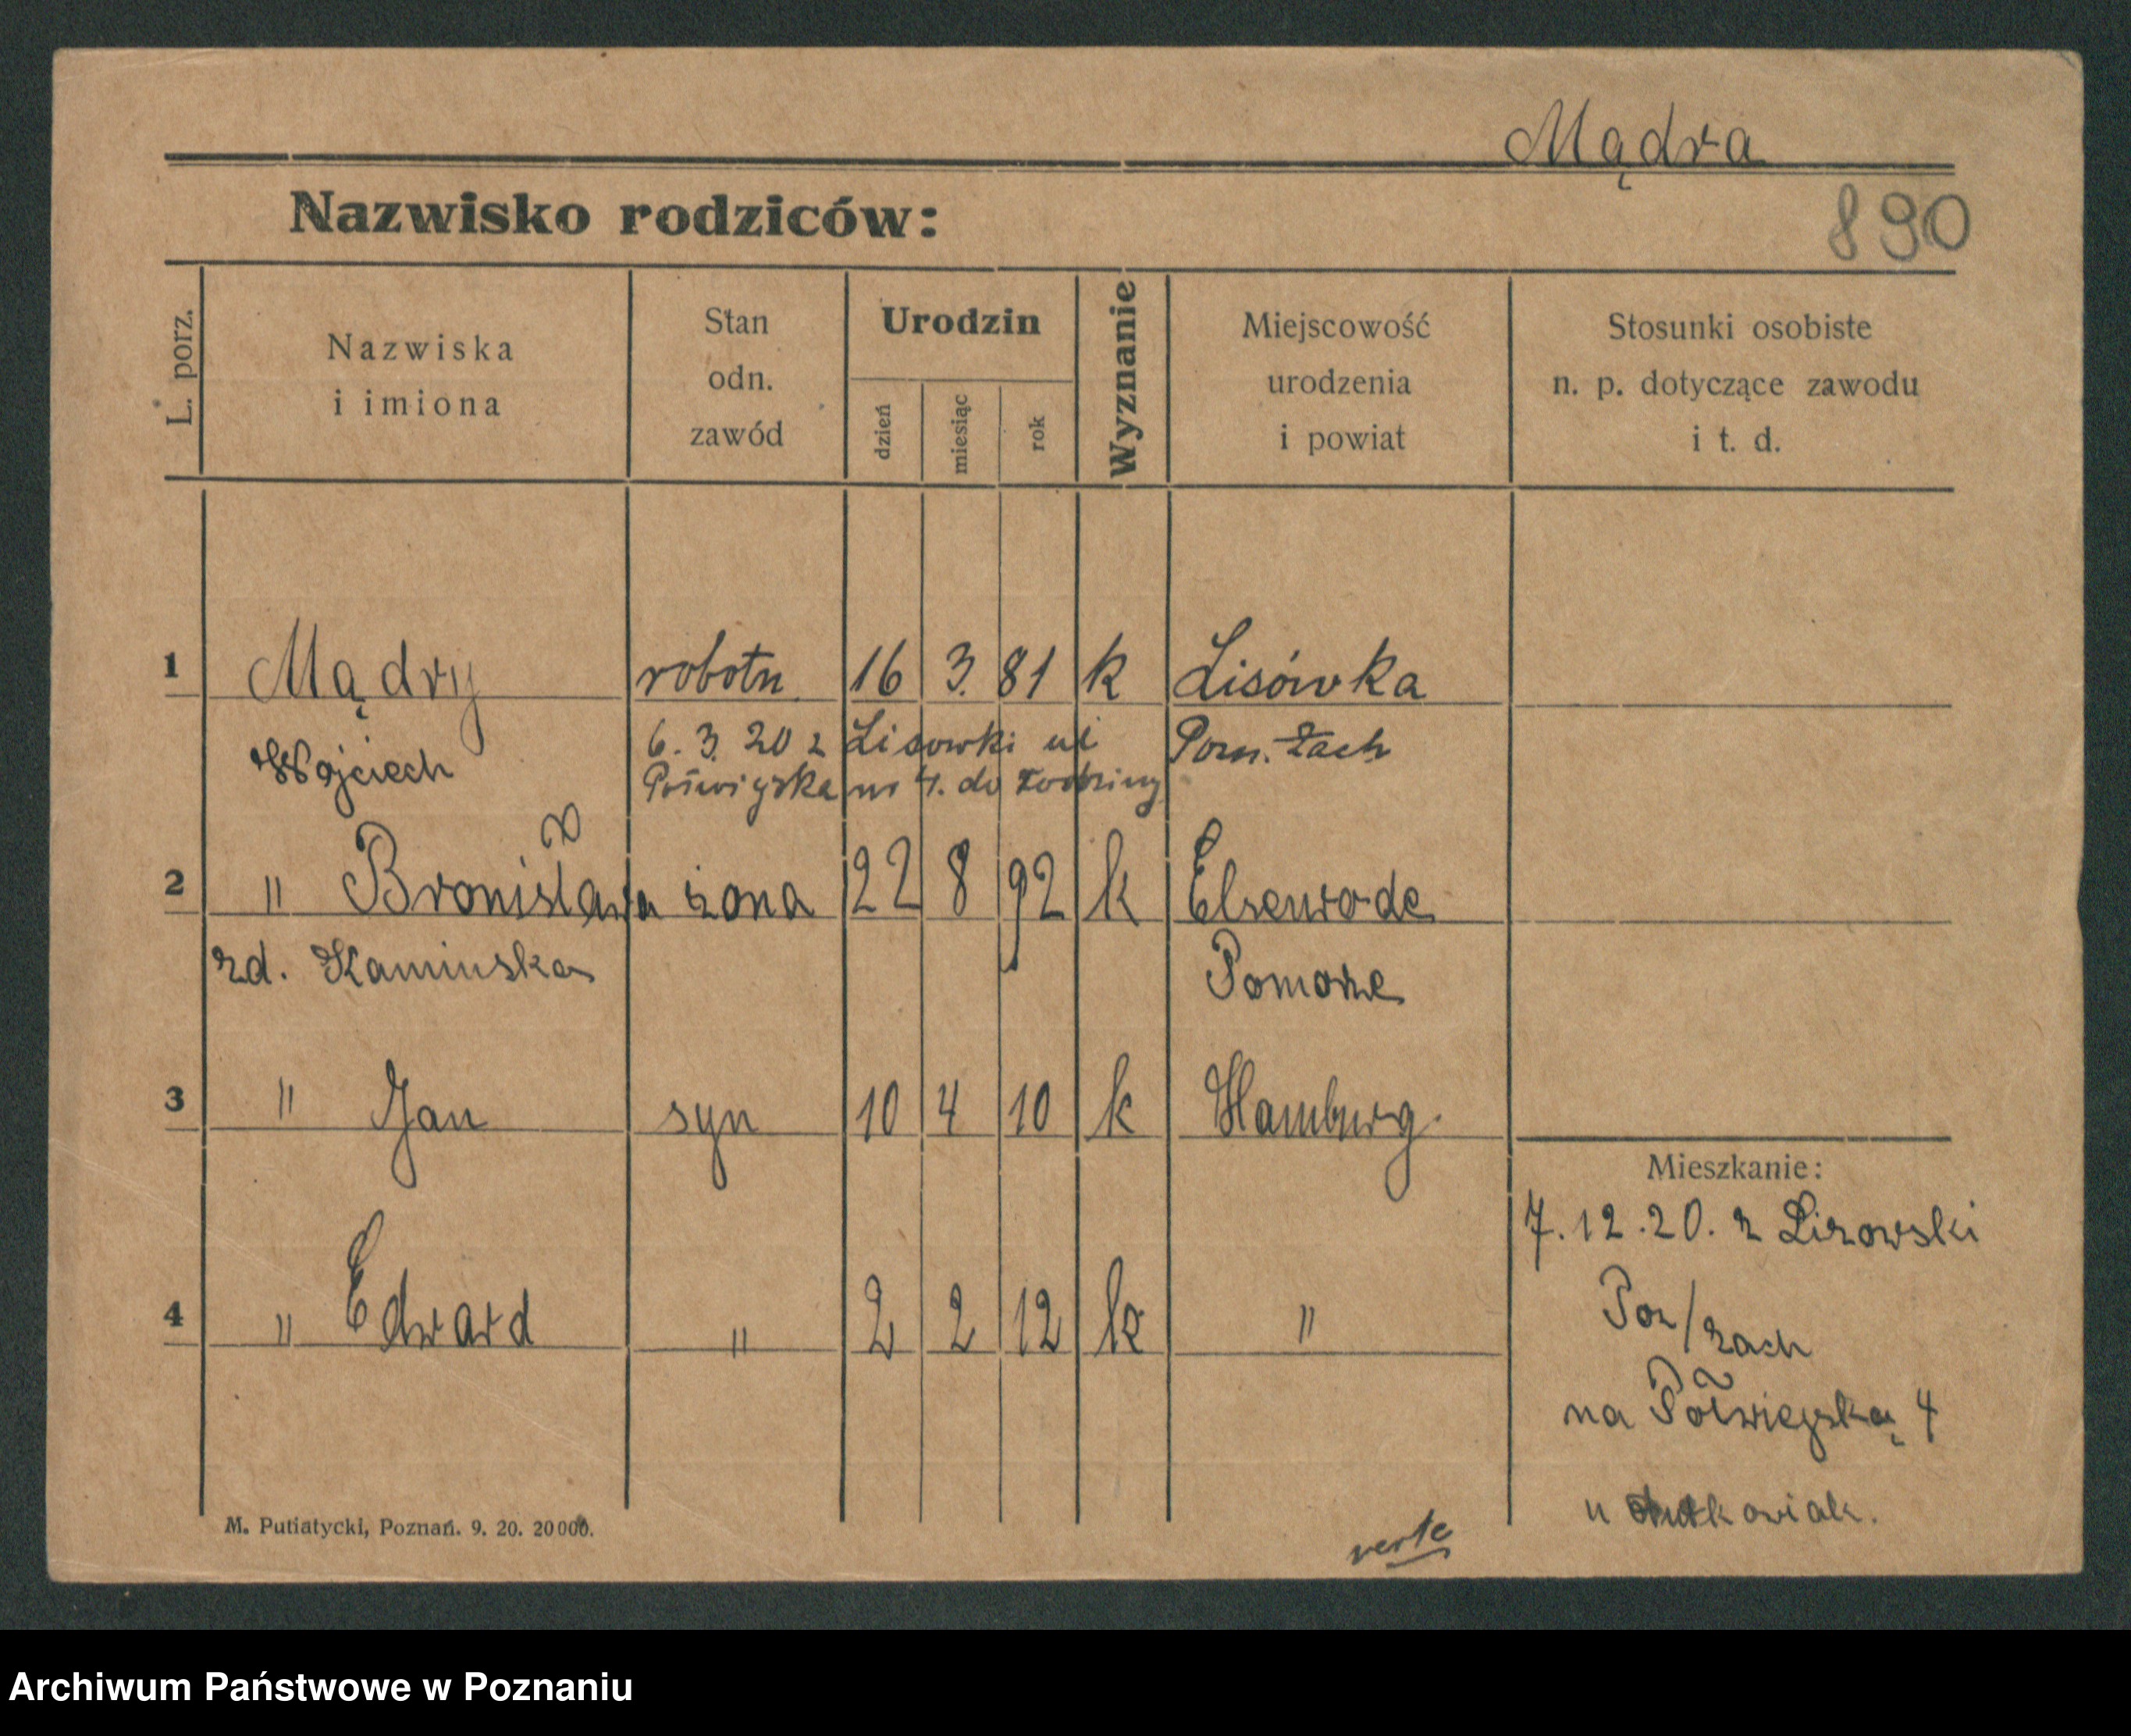 Mądra
Nazwisko rodziców:
890
L. porz.
Nazwiska
i imiona
Stan
odn.
zawód
Urodzin
dzień
miesiąc
rok
Wyznanie
Miejscowość
urodzenia
i powiat
Stosunki osobiste
n. p. dotyczące zawodu
i t. d.
1 Mądry robotn. 16 3. 81 k Lisówka
Wojciech 6. 3. 20 z Lisowki ul Pozn. Zach
nr 4. do rodziny
2 " Bronisława żona 22 8 92 k Elsenrode
zd. Kaminska Pomorze
3 " Jan syn 10 4 10 k Hamburg.
Mieszkanie:
7. 12. 20. z Lizowski
Poz/zach
4 " Edward " 2 2 12 k "
na Półwiejską 4
u
M. Putiatycki, Poznań. 9. 20. 20000.
verte
Archiwum Państwowe w Poznaniu